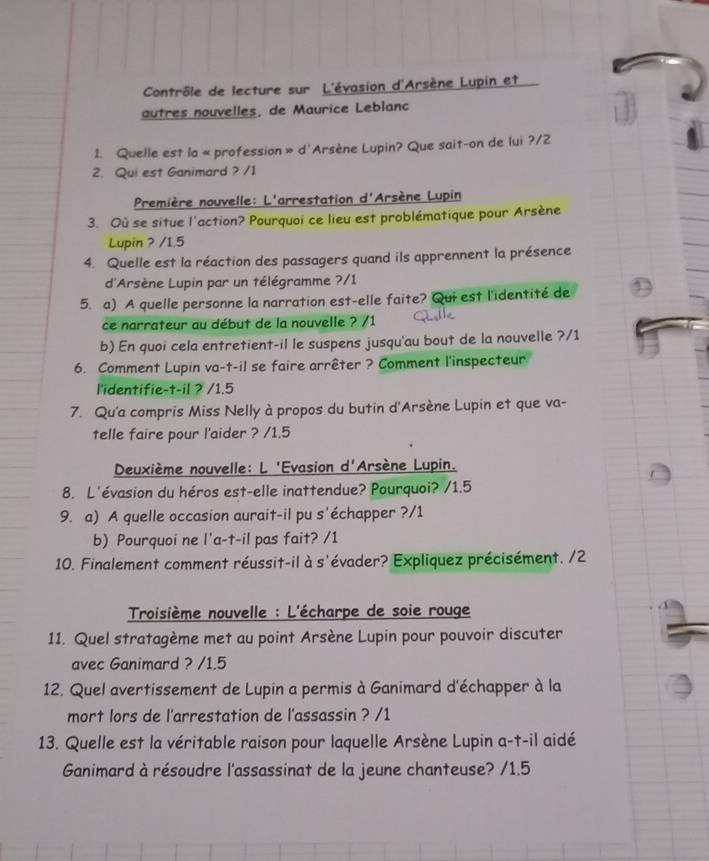 Contrôle de lecture sur L'évasion d'Arsène Lupin et
autres nouvelles, de Maurice Leblanc
1. Quelle est la « profession » d'Arsène Lupin? Que sait-on de lui ?/2
2. Qui est Ganimard ? /1
Première nouvelle: L'arrestation d'Arsène Lupin
3. Où se situe l'action? Pourquoi ce lieu est problématique pour Arsène
Lupin ? /1.5
4. Quelle est la réaction des passagers quand ils apprennent la présence
d'Arsène Lupin par un télégramme ?/1
5. a) A quelle personne la narration est-elle faite? Qui est l'identité de
Quelle
ce narrateur au début de la nouvelle ? /1
b) En quoi cela entretient-il le suspens jusqu'au bout de la nouvelle ?/1
6. Comment Lupin va-t-il se faire arrêter ? Comment l'inspecteur
l'identifie-t-il ? /1.5
7. Qu'a compris Miss Nelly à propos du butin d'Arsène Lupin et que va-
telle faire pour l'aider ? /1.5
Deuxième nouvelle: L 'Evasion d'Arsène Lupin.
8. L'évasion du héros est-elle inattendue? Pourquoi? /1.5
9. a) A quelle occasion aurait-il pu s'échapper ?/1
b) Pourquoi ne l'a-t-il pas fait? /1
10. Finalement comment réussit-il à s'évader? Expliquez précisément. /2
Troisième nouvelle : L'écharpe de soie rouge
11. Quel stratagème met au point Arsène Lupin pour pouvoir discuter
avec Ganimard ? /1.5
12. Quel avertissement de Lupin a permis à Ganimard d'échapper à la
mort lors de l'arrestation de l'assassin ? /1
13. Quelle est la véritable raison pour laquelle Arsène Lupin a-t-il aidé
Ganimard à résoudre l'assassinat de la jeune chanteuse? /1.5